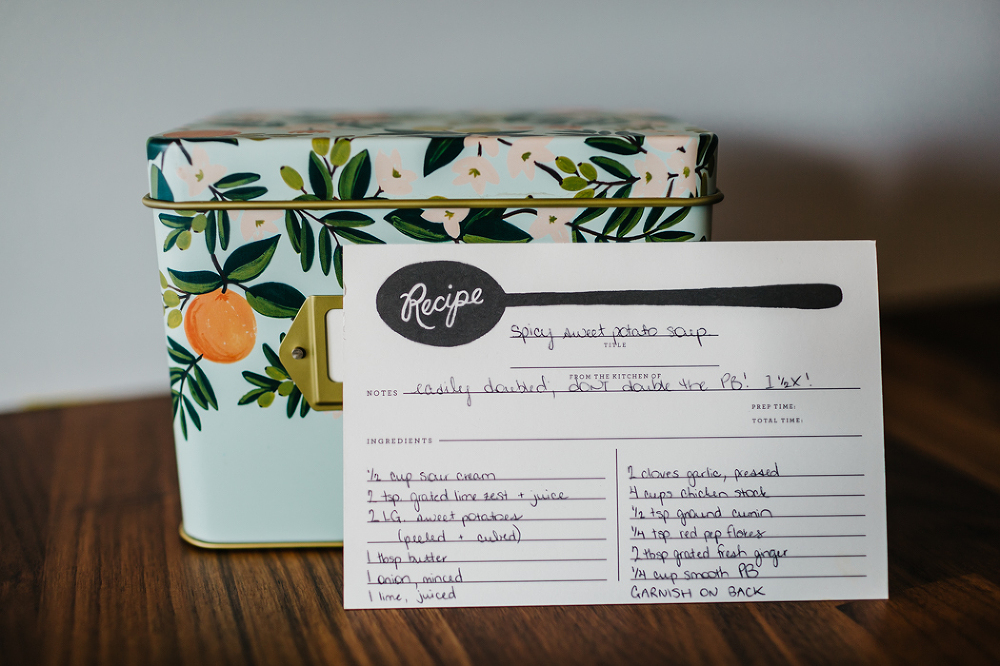 Recipe
Spicy sweet potato soup
TITLE
FROM THE KITCHEN OF
NOTES easily doubled; don't double the PB! 1 1/2x!
PREP TIME:
TOTAL TIME:
INGREDIENTS
1/2 cup sour cream
2 tsp grated lime zest + juice
2 LG. sweet potatoes
(peeled + cubed)
1 tbsp butter
1 onion, minced
1 lime, juiced
2 cloves garlic, pressed
4 cups chicken stock
1/2 tsp ground cumin
1/4 tsp red pep flakes
2 tbsp grated fresh ginger
1/4 cup smooth PB
GARNISH ON BACK